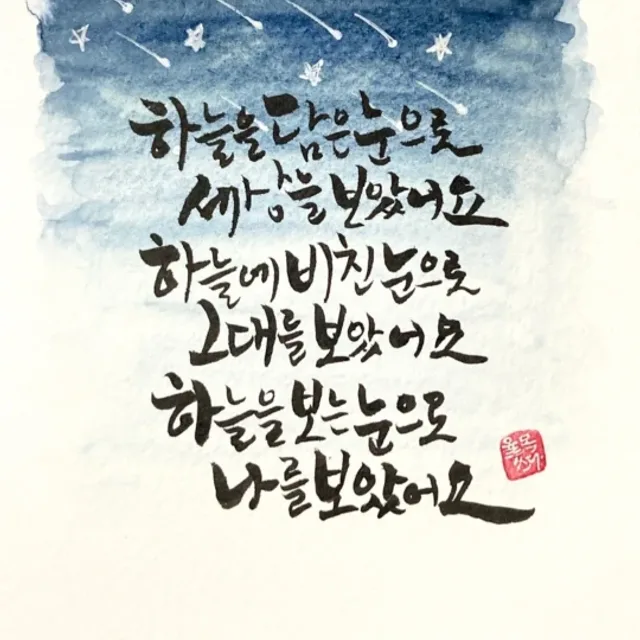 하늘을 담은 눈으로
세상을 보았어요
하늘에 비친 눈으로
그대를 보았어요
하늘을 보는 눈으로
나를 보았어요